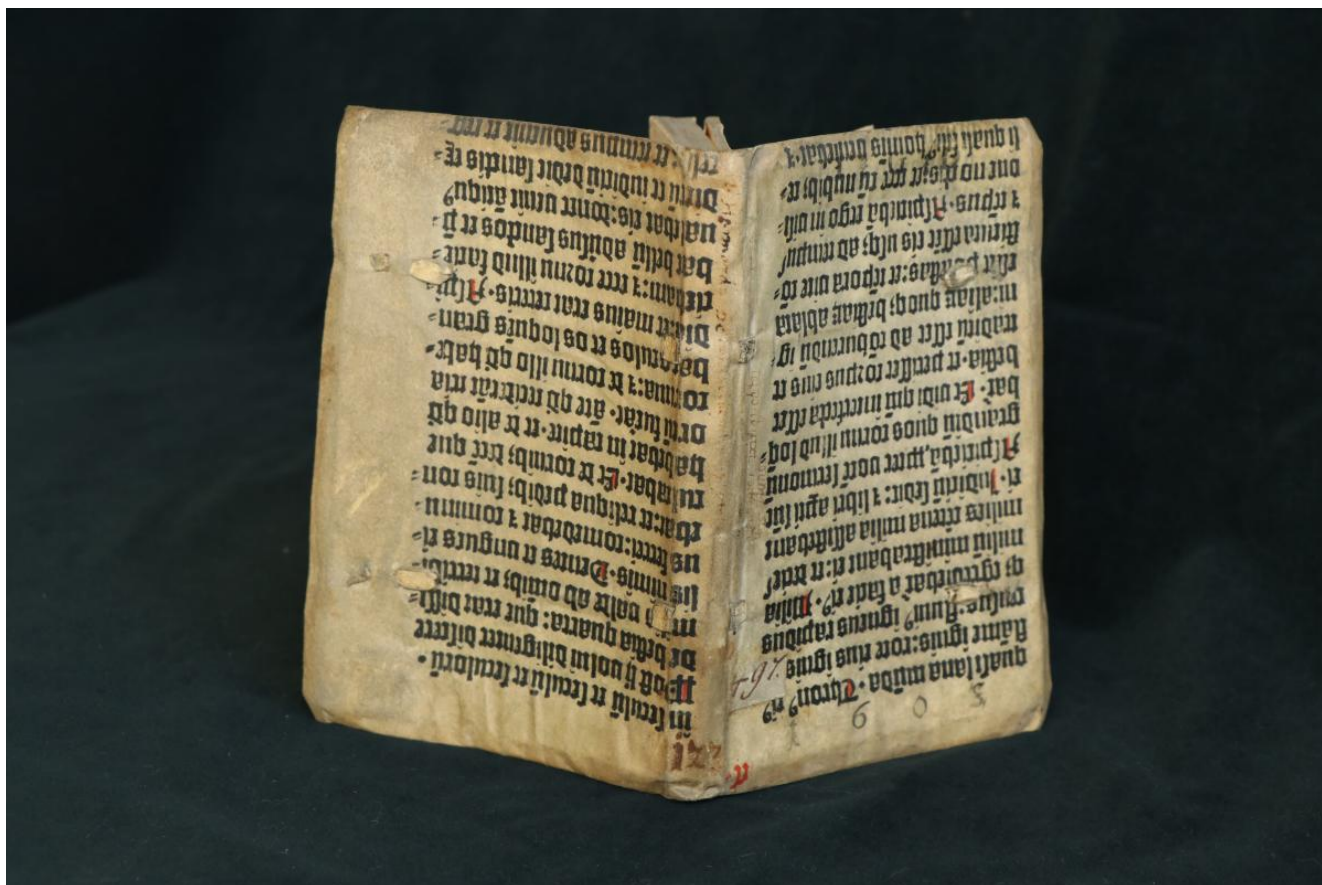 quasi lana mūda. Thronꝰ eiꝰ
flāme ignis: rote eius ignis
fluuiꝰ igneus rapidus
q; egrediebat̄ a facie eiꝰ. Milia
miliū ministrabant ei: et decies
milies cētena milia assistebant
ei. Iudiciū sedit: ⁊ libri aꝑti sūt
Aspiciebā ꝓpter vocē sermonū
grandiū quos cornu illud loq̄⸗
bat̄. Et vidi qm̄ interfecta esset
bestia. et perisset corpus eius et
traditū esset ad cōburendū ig⸗
ni: aliaꝝ quoq; bestiaꝝ ablata
esset potestas: et tēpora vite cō⸗
stituta essēt eis usq; ad tempus
⁊ tēpus. Aspiciebā ergo in visi⸗
one noctis: et ecce cū nubib; ce⸗
li quasi filiꝰ hominis veniebat: ⁊
in seculū et seculū seculorū.
Post h̄ volui diligenter discere
de bestia quarta: que erat dissi⸗
milis valde ab oīnib; et terribi⸗
lis nimis. Dentes et ungues ei⸗
us ferrei: comedebat ⁊ comminu⸗
ebat: et reliqua pedib; suis con⸗
culcabat. Et de cornib; decē que
habebat in capite. et de alio qd̄
ortū fuerat. āte qd̄ ceciderāt tria
cornua: ⁊ de cornu illo qd̄ habe⸗
bat oculos et os loquēs gran⸗
dia: et maius erat ceteris. Aspi⸗
ciebam: ⁊ ecce cornu illud facie⸗
bat bellū adv̄sus sanctos et p̄⸗
ualebat eis: donec venit ātiquꝰ
dierū et iudiciū dedit sanctis ex⸗
celsi: et tempus aduenit et reg⸗
497.
1603
122